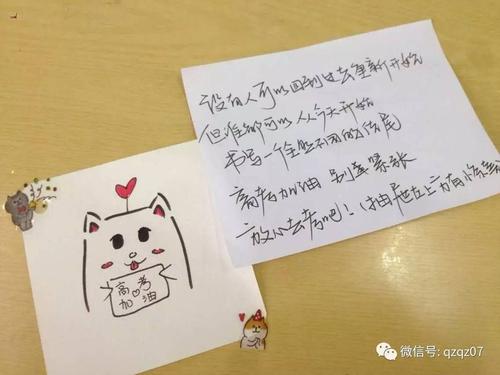 没有人可以回到过去重新开始
但谁都可以从今天开始
书写一个全然不同的结尾
高考加油 别太紧张
放心去考吧！(抽屉左上方有小惊喜
高考
加油
微信号: qzqz07